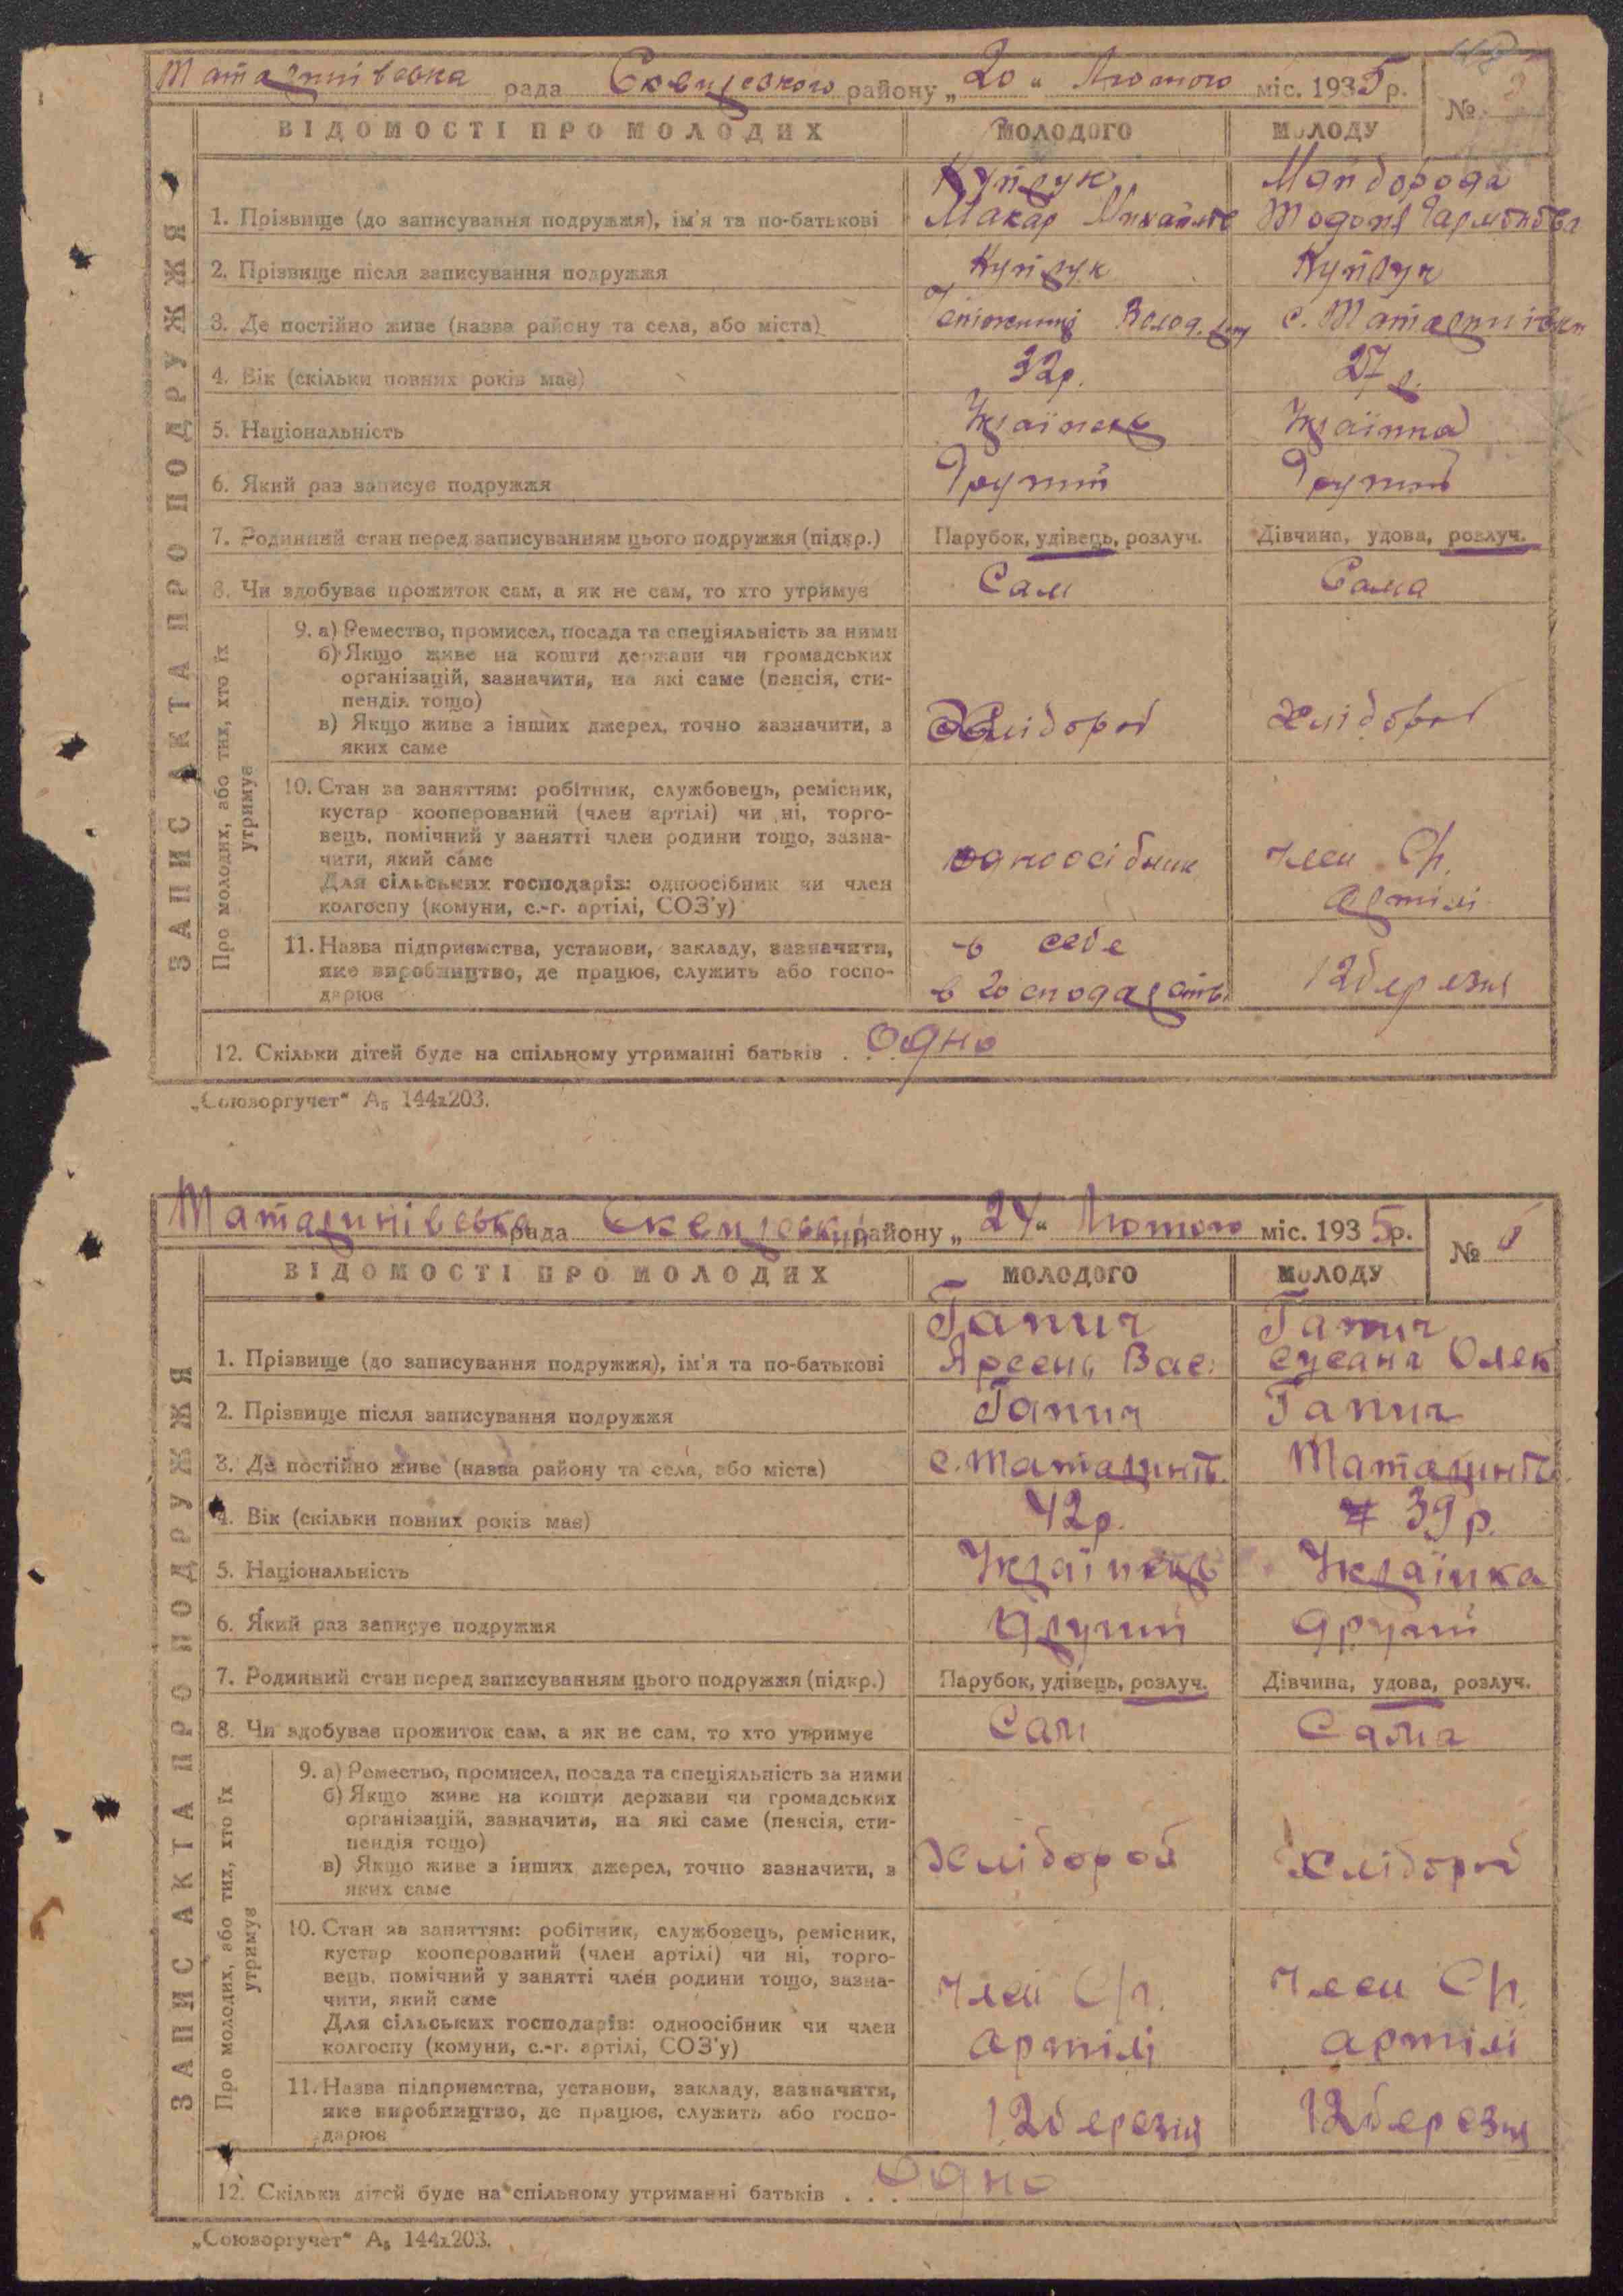 рада району „ 20 “ Лютого міс. 1935 р.
№
ВІДОМОСТІ ПРО МОЛОДИХ
МОЛОДОГО
МОЛОДУ
ЗАПИС АКТА ПРО ПОДРУЖЖЯ
1. Прізвище (до записування подружжя), ім'я та по-батькові
Макар
Майборода
2. Прізвище після записування подружжя
3. Де постійно живе (назва району та села, або міста)
с.
4. Вік (скільки повних років має)
32р.
27 р.
5. Національність
Українець
Українка
6. Який раз записує подружжя
Другий
Другий
7. Родинний стан перед записуванням цього подружжя (підкр.)
Парубок, удівець, розлуч.
Дівчина, удова, розлуч.
8. Чи здобуває прожиток сам, а як не сам, то хто утримує
Сам
Сама
Про молодих, або тих, хто їх утримує
9. а) Ремество, промисел, посада та спеціяльність за ними
б) Якщо живе на кошти держави чи громадських
організацій, зазначити, на які саме (пенсія, сти-
пендія тощо)
в) Якщо живе з інших джерел, точно зазначити, з
яких саме
Хлібороб
Хлібороб
10. Стан за заняттям: робітник, службовець, ремісник,
кустар кооперований (член артілі) чи ні, торго-
вець, помічний у занятті член родини тощо, зазна-
чити, який саме
Для сільських господарів: одноосібник чи член
колгоспу (комуни, с.-г. артілі, СОЗ'у)
одноосібник
член
артілі
11. Назва підприємства, установи, закладу, зазначити,
яке виробництво, де працює, служить або госпо-
дарює
в себе
в господарств.
12 березня
12. Скільки дітей буде на спільному утриманні батьків . . . Одно
„Союзоргучет“ А₅ 144х203.
рада району „ 24 “ Лютого міс. 1935 р.
№
ВІДОМОСТІ ПРО МОЛОДИХ
МОЛОДОГО
МОЛОДУ
ЗАПИС АКТА ПРО ПОДРУЖЖЯ
1. Прізвище (до записування подружжя), ім'я та по-батькові
Гапич
Арсень Вас.
Гапич
Олек
2. Прізвище після записування подружжя
Гапич
Гапич
3. Де постійно живе (назва району та села, або міста)
4. Вік (скільки повних років має)
42р.
39 р.
5. Національність
Українець
Українка
6. Який раз записує подружжя
Другий
другий
7. Родинний стан перед записуванням цього подружжя (підкр.)
Парубок, удівець, розлуч.
Дівчина, удова, розлуч.
8. Чи здобуває прожиток сам, а як не сам, то хто утримує
Сам
Сама
Про молодих, або тих, хто їх утримує
9. а) Ремество, промисел, посада та спеціяльність за ними
б) Якщо живе на кошти держави чи громадських
організацій, зазначити, на які саме (пенсія, сти-
пендія тощо)
в) Якщо живе з інших джерел, точно зазначити, з
яких саме
Хлібороб
Хлібороб
10. Стан за заняттям: робітник, службовець, ремісник,
кустар кооперований (член артілі) чи ні, торго-
вець, помічний у занятті член родини тощо, зазна-
чити, який саме
Для сільських господарів: одноосібник чи член
колгоспу (комуни, с.-г. артілі, СОЗ'у)
член
артілі
член
артілі
11. Назва підприємства, установи, закладу, зазначити,
яке виробництво, де працює, служить або госпо-
дарює
12 березня
12 березня
12. Скільки дітей буде на спільному утриманні батьків . . . Одно
„Союзоргучет“ А₅ 144х203.